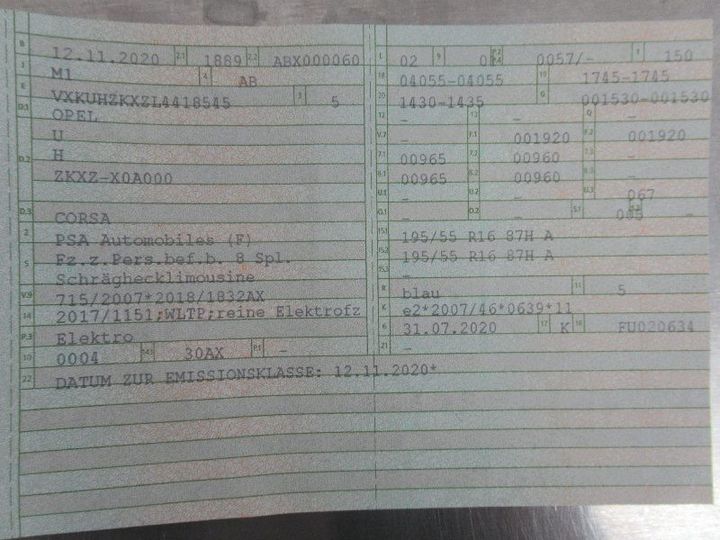 B 12.11.2020 2.1 1889 2.2 ABX000060
J M1 4 AB
E VXKUHZKXZL4418545 3 5
D.1 OPEL
U
D.2 H
ZKXZ-X0A000
D.3 CORSA
2 PSA Automobiles (F)
5 Fz.z.Pers.bef.b. 8 Spl.
Schräghecklimousine
V.9 715/2007*2018/1832AX
14 2017/1151;WLTP;reine Elektrofz
P.3 Elektro
10 0004 14.1 30AX P.1 -
22 DATUM ZUR EMISSIONSKLASSE: 12.11.2020*
L 02 9 0 P.2 P.4 0057/- T 150
18 04055-04055 19 1745-1745
20 1430-1435 G 001530-001530
12 - 13 - Q -
V.7 - F.1 001920 F.2 001920
7.1 00965 7.2 00960 7.3 -
8.1 00965 8.2 00960 8.3 -
U.1 - U.2 - U.3 067
O.1 - O.2 - S.1 005 S.2 -
15.1 195/55 R16 87H A
15.2 195/55 R16 87H A
15.3 -
R blau 11 5
K e2*2007/46*0639*11
6 31.07.2020 17 K 16 FU020634
21 -